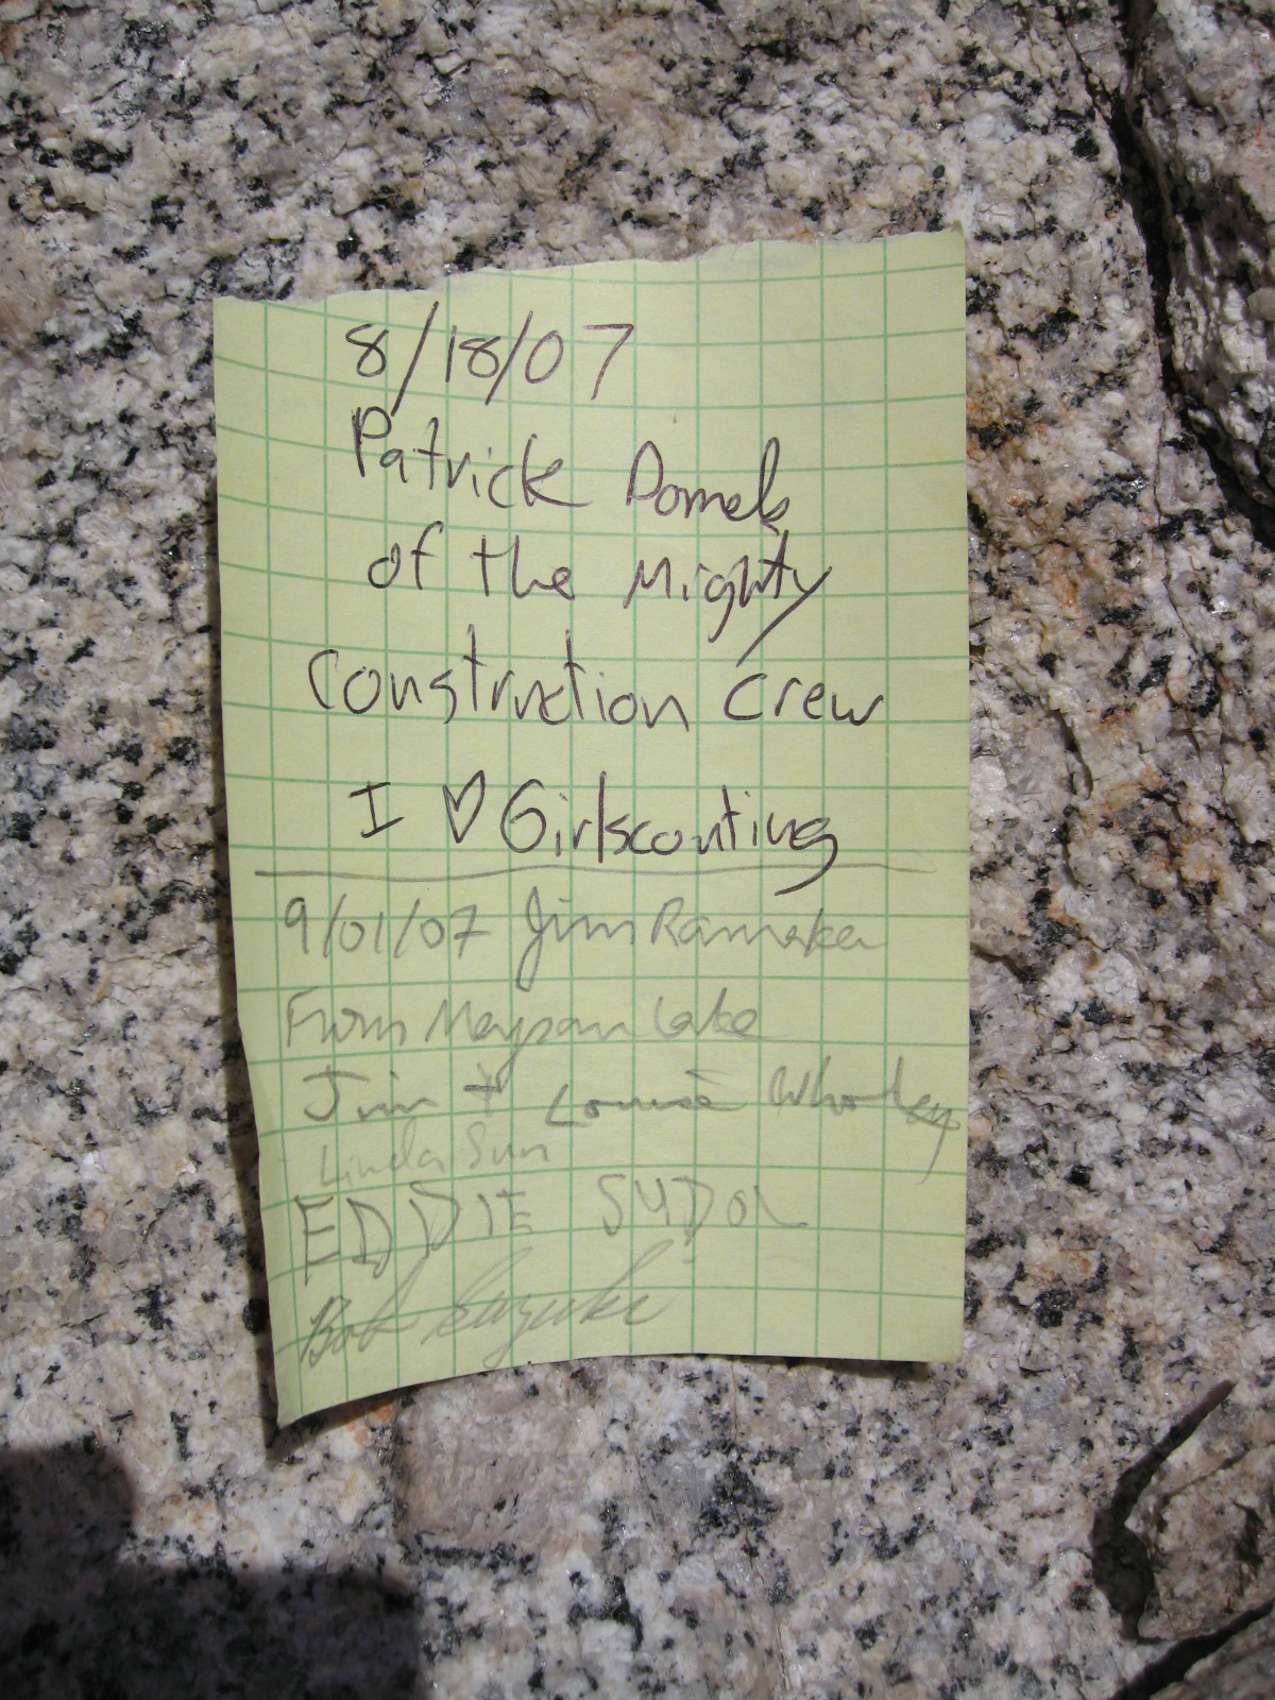 8/18/07
Patrick
of the Mighty
Construction Crew
I ♡ Girlscouting
9/01/07 Jim Ramaker
From Meysan Lake
Jim + Louise Wholey
Linda Sun
EDDIE SUDOL
Bob Suzuki